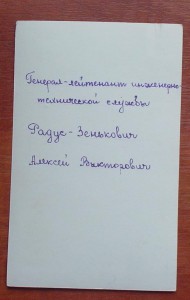 Генерал-лейтенант инженерно
технической службы
Радус-Зенькович
Алексей Викторович